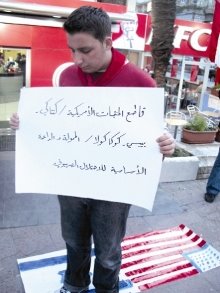 KFC
قاطع المنتجات الأمريكية / كنتاكي.
بيبسي. كوكاكولا / الممولة و الداعمة
الأساسية للاحتلال الصهيوني